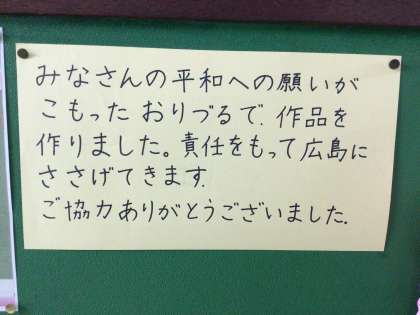 みなさんの平和への願いが
こもった おりづるで、作品を
作りました。責任をもって広島に
ささげてきます。
ご協力ありがとうございました。